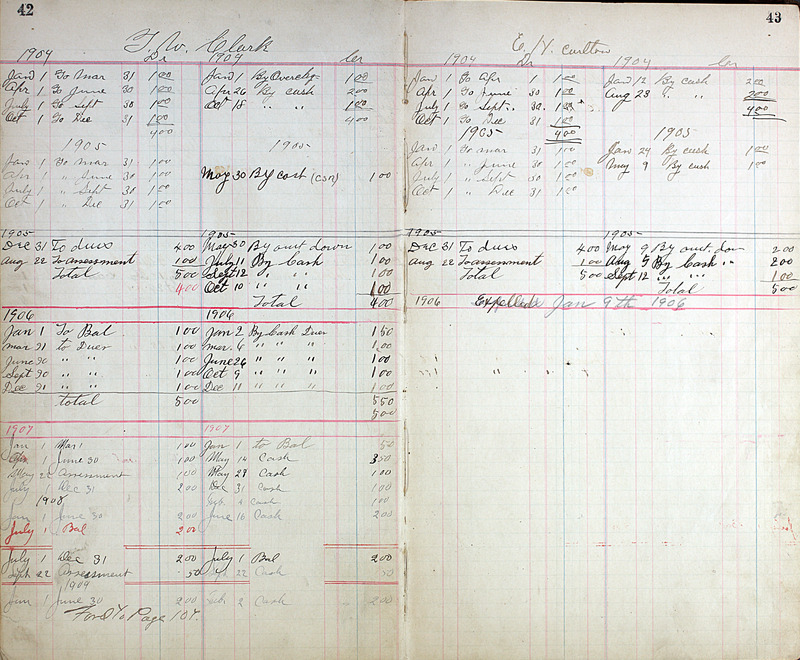 42
T. W. Clark
1904 Dr 1904 Cr
Jan 1 To Mar 31 1 00 Jan 1 By Overchg 1 00
Apr 1 To June 30 1 00 Apr 26 By cash 2 00
July 1 To Sept 30 1 00 Oct 18 " " 1 00
Oct 1 To Dec 31 1 00 4 00
4 00
1905 1905
Jan 1 To Mar 31 1 00
Apr 1 " June 30 1 00 May 30 By cash (CSR) 1 00
July 1 " Sept 30 1 00
Oct 1 " Dec 31 1 00
1905 1905
Dec 31 To dues 4 00 May 30 By amt down 1 00
Aug 22 To assessment 1 00 July 11 By Cash 1 00
Total 5 00 Sept 12 " " 1 00
4 00 Oct 10 " " 1 00
Total 4 00
1906 1906
Jan 1 To Bal 1 00 Jan 2 By Cash Dues 1 50
Mar 31 to Dues 1 00 Mar. 6 " " " 1 00
June 30 " " 1 00 June 26 " " " 1 00
Sept 30 " " 1 00 Oct 9 " " " 1 00
Dec 31 " " 1 00 Dec 11 " " " 1 00
total 5 00 5 50
5 00
1907 1907
Jan 1 Mar 1 00 Jan 1 to Bal 50
Apr 1 June 30 1 00 May 14 Cash 3 50
May 22 Assessment 1 00 May 29 Cash 1 00
July 1 Dec 31 2 00 Dec 31 Cash 1 00
1908 Feb. 4 cash 1 00
Jan 1 June 30 2 00 June 16 Cash 2 00
July 1 Bal 2 00
July 1 Dec 31 2 00 July 1 Bal 2 00
Sept 22 Assessment 50 Sept 22 Cash 50
1909
Jan 1 June 30 2 00 Feb 2 Cash 2 00
Ford To Page 107.
43
E. V. Carlton
1904 Dr 1904 Cr
Jan 1 To Apr 1 1 00 Jan 12 By cash 2 00
Apr 1 To June 30 1 00 Aug 23 " " 2 00
July 1 To Sept. 30 1 00 4 00
Oct 1 To Dec 31 1 00
1905 4 00 1905
Jan 1 To Mar 31 1 00 Jan 24 By cash 1 00
Apr 1 " June 30 1 00 May 9 By cash 1 00
July 1 " Sept 30 1 00
Oct 1 " Dec 31 1 00
1905 1905
Dec 31 To dues 4 00 May 9 By amt. down 2 00
Aug 22 To assessment 1 00 Aug 5 By Cash " 2 00
Total 5 00 Sept 12 " " 1 00
Total 5 00
1906 Expelled Jan 9th 1906